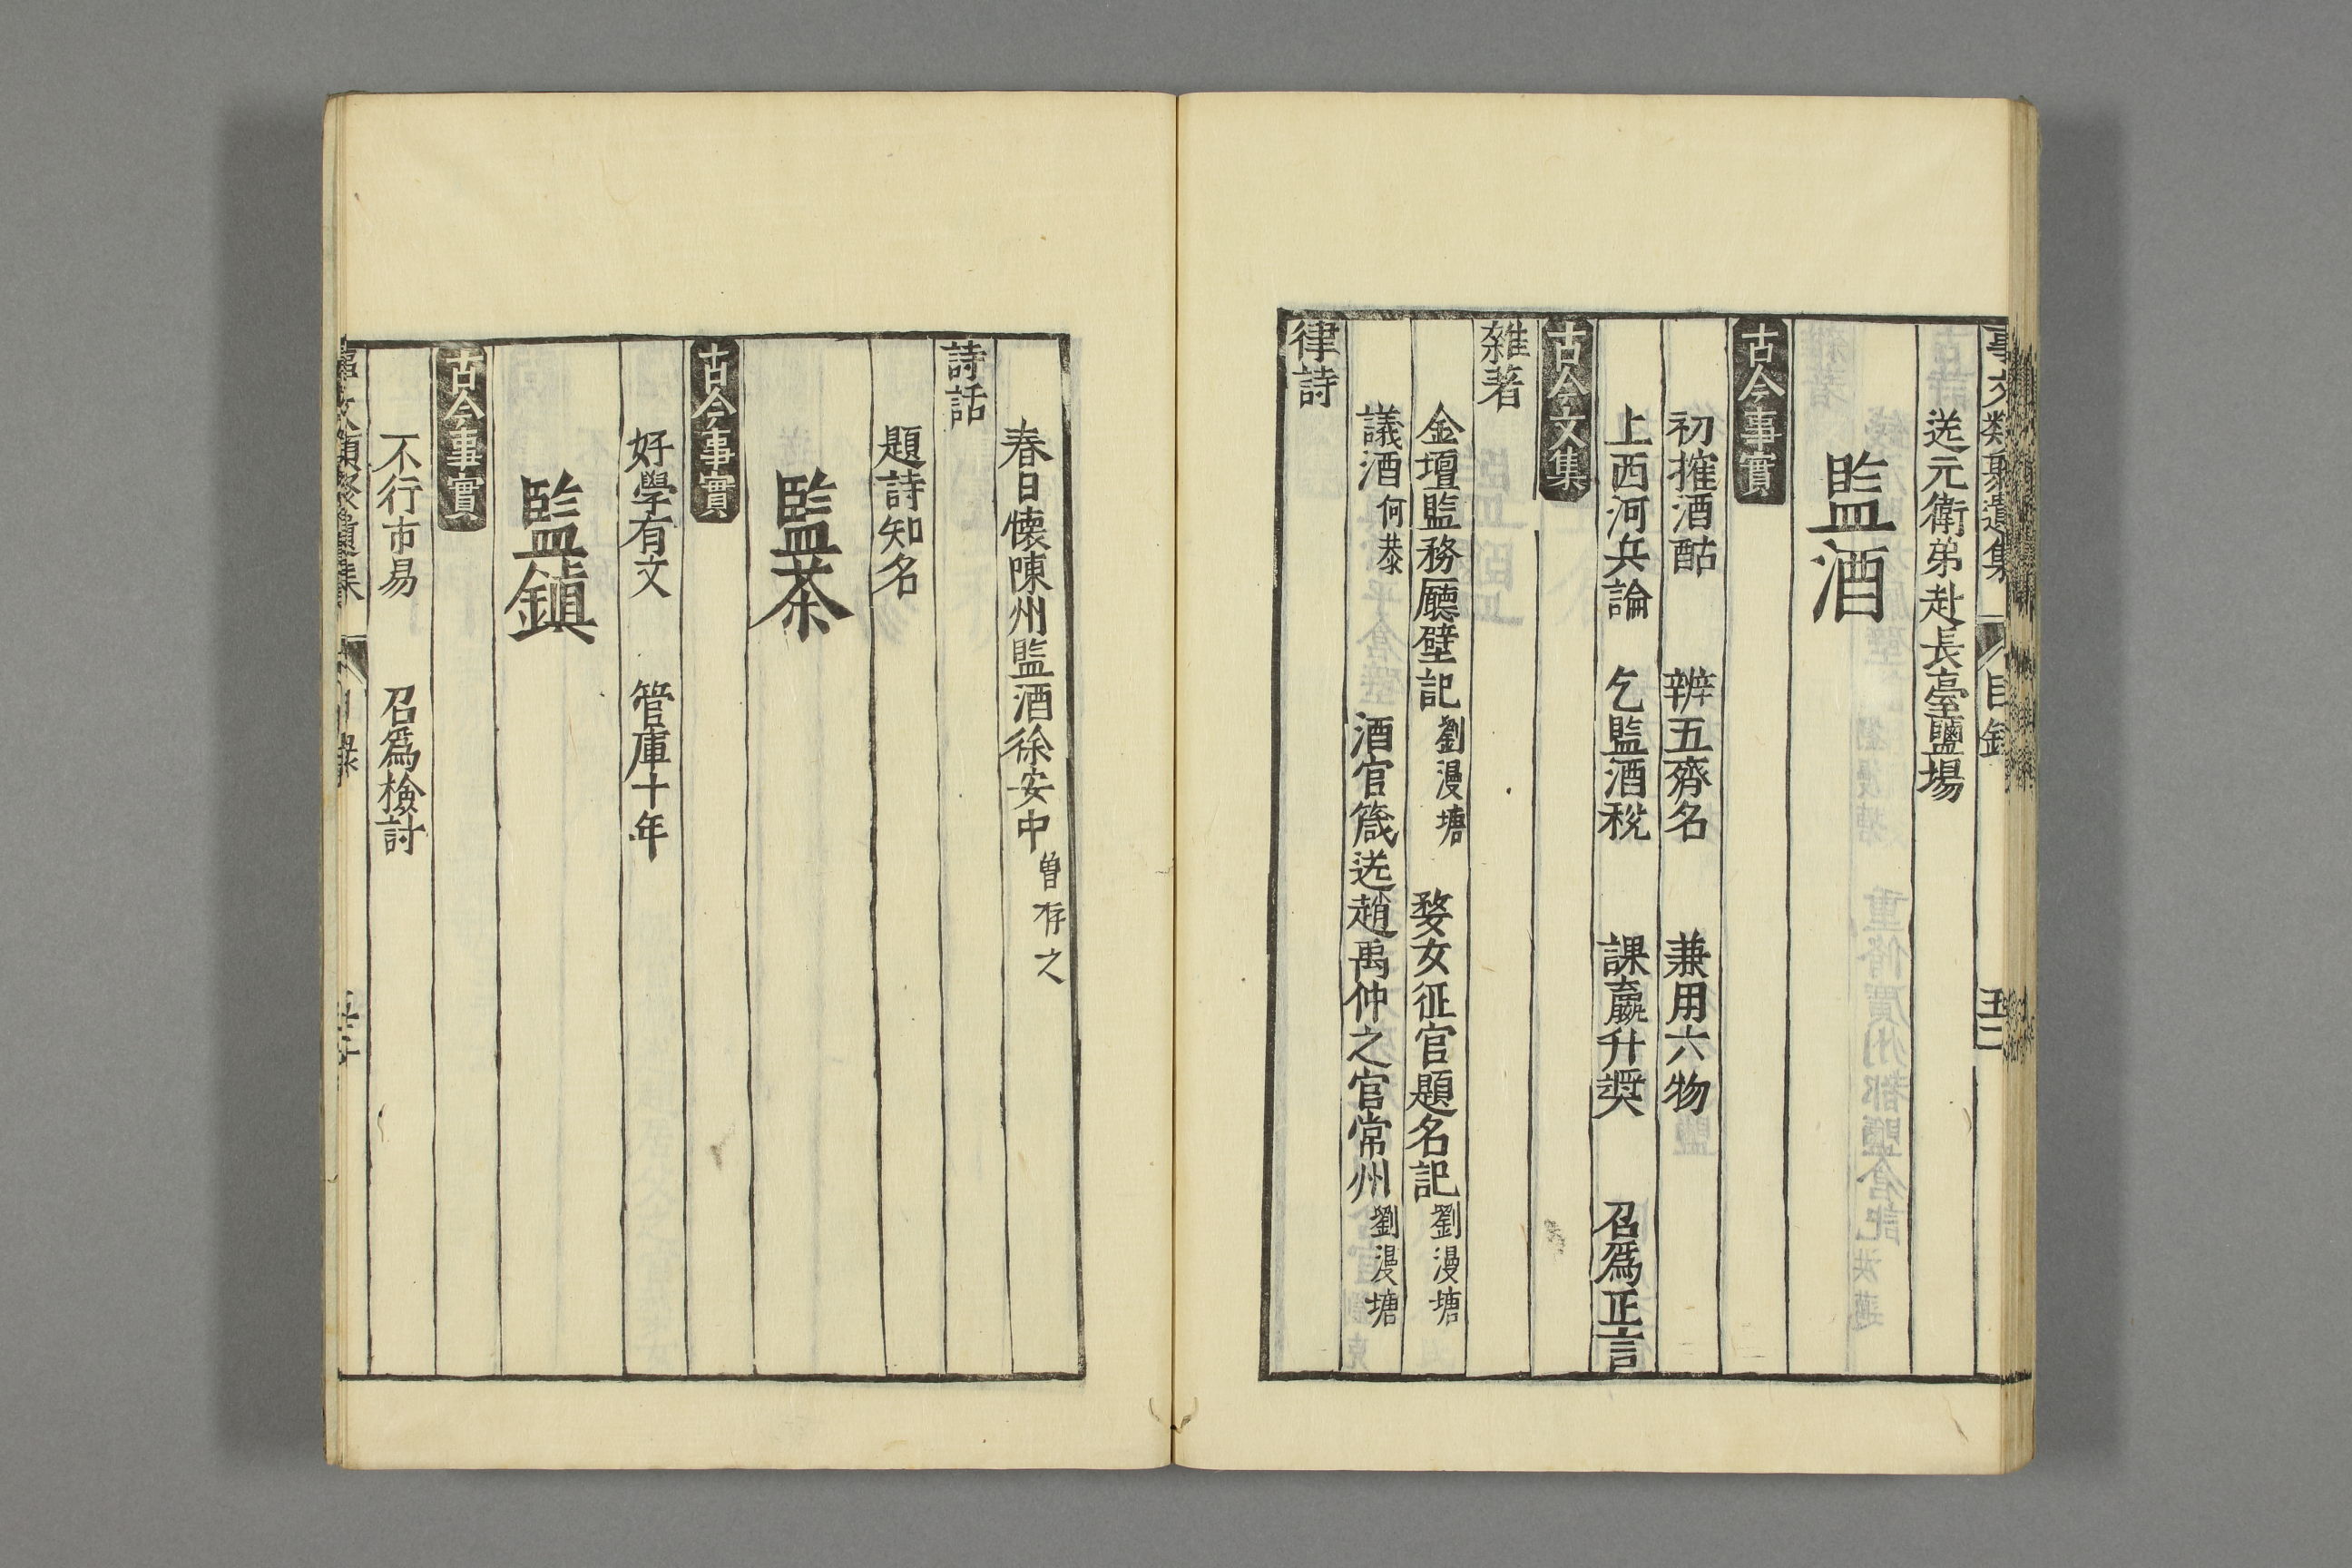 事文類聚遺集 目錄 五十二
送元衛弟赴長臺鹽場
監酒
古今事實
初榷酒酤 辨五齊名 兼用六物
上西河兵論 乞監酒稅 課羸升獎 召爲正言
古今文集
雜著
金壇監務廳壁記 劉漫塘 婺女征官題名記 劉漫塘
議酒 何恭 酒官箴送趙禹仲之官常州 劉漫塘
律詩
春日懷陳州監酒徐安中 曾存之
詩話
題詩知名
監茶
古今事實
好學有文 管庫十年
監鎮
古今事實
不行市易 召爲檢討